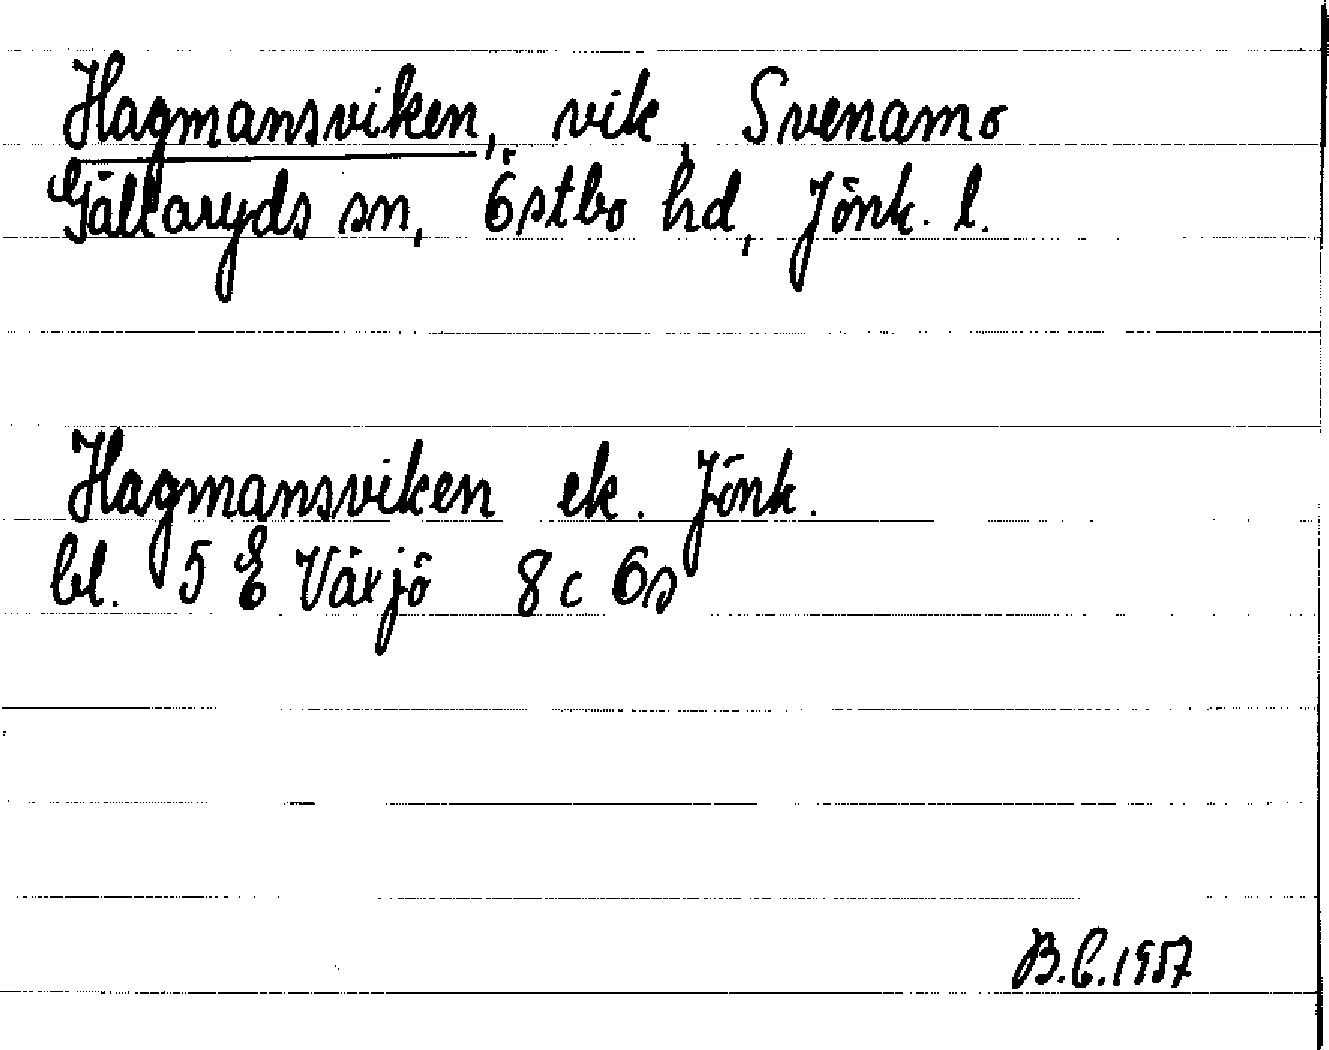 Hagmansviken, vik, Svenamo
Gällaryds sn, Östbo hd, Jönk. l.
Hagmansviken ek. Jönk.
bl. 5 E Växjö 8 c 6s
B.C.1957